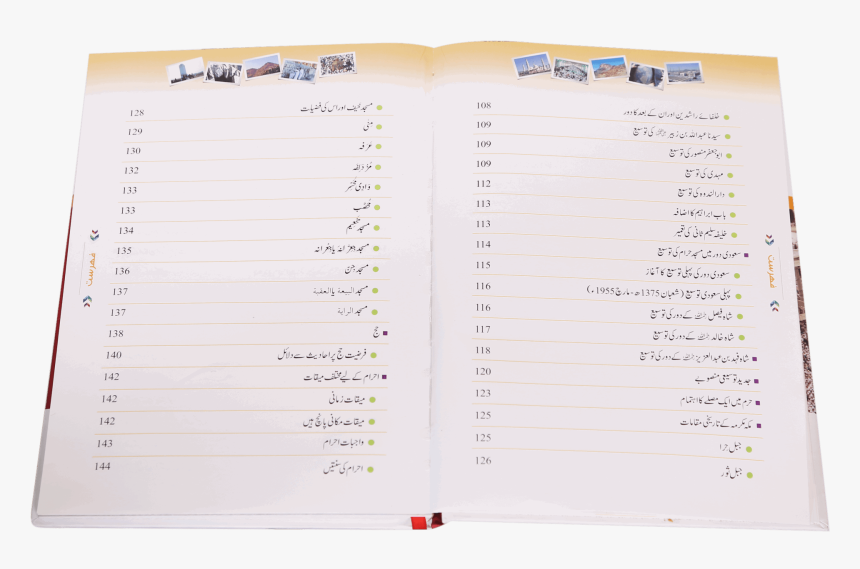 خلفائے راشدین اور ان کے بعد کا دور 108
سیدنا عبداللہ بن زبیر کی توسیع 109
ابو جعفر منصور کی توسیع 109
مہدی کی توسیع 109
دار الندوہ کی توسیع 112
باب ابراہیم کا اضافہ 113
خلیفہ سلیم ثانی کی تعمیر 113
سعودی دور میں مسجد حرام کی توسیع 114
سعودی دور کی پہلی توسیع کا آغاز 115
پہلی سعودی توسیع (شعبان 1375ھ - مارچ 1955ء) 116
شاہ فیصل کے دور کی توسیع 116
شاہ خالد کے دور کی توسیع 117
شاہ فہد بن عبدالعزیز کے دور کی توسیع 118
جدید توسیعی منصوبے 120
حرم میں ایک مصلے کا اہتمام 123
مکہ مکرمہ کے تاریخی مقامات 125
جبل حرا 125
جبل ثور 126
فہرست
مسجد خیف اور اس کی فضیلت 128
منیٰ 129
عرفہ 130
مزدلفہ 132
وادی محسّر 133
محصّب 133
مسجد تنعیم 134
مسجد جعرانہ یا جعرانہ 135
مسجد جن 136
مسجد البیعة یا العقبة 137
مسجد الرایة 137
حج 138
فرضیت حج پر احادیث سے دلائل 140
احرام کے لیے مختلف میقات 142
میقات زمانی 142
میقات مکانی پانچ ہیں 142
واجبات احرام 143
احرام کی سنتیں 144
فہرست